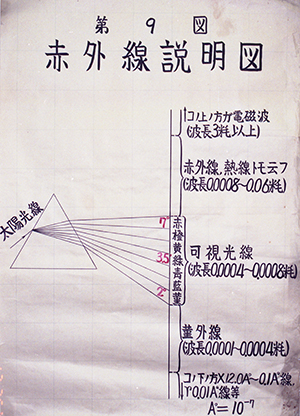 第9図
赤外線説明図
コノ上ノ方ガ電磁波
(波長3粍以上)
赤外線,熱線トモ云フ
(波長0.0008~0.06粍)
太陽光線
7°
3.5
2°
赤
橙
黄
緑
青
藍
菫
可視光線
(波長0.0004~0.0008粍)
菫外線
(波長0.0001~0.0004粍)
コノ下ノ方X12.0A°~0.1A°線,
γ0.01A°線等
A°=10⁻⁷